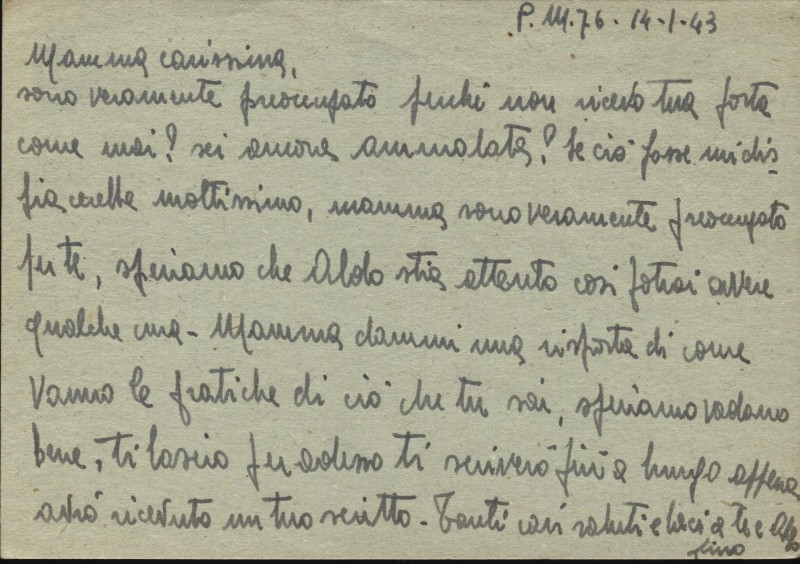 P.M.76. 14-1-43
Mamma carissima,
sono veramente preoccupato perchè non ricevo tua posta
come mai? sei ancora ammalata? Se ciò fosse mi dis-
piacerebbe moltissimo, mamma sono veramente preoccupato
per te, speriamo che Aldo stia attento così potrai avere
qualche cura - Mamma dammi una risposta di come
vanno le pratiche di ciò che tu sai, speriamo vadano
bene, ti lascio per adesso ti scriverò più a lungo appena
avrò ricevuto un tuo scritto - Tanti cari saluti e baci a te e Aldo